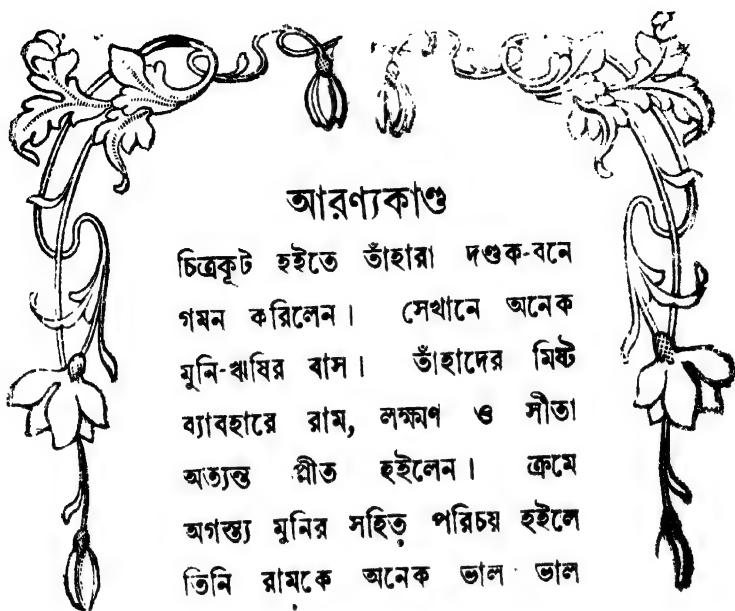 আরণ্যকাণ্ড
চিত্রকূট হইতে তাঁহারা দণ্ডক-বনে
গমন করিলেন। সেখানে অনেক
মুনি-ঋষির বাস। তাঁহাদের মিষ্ট
ব্যাবহারে রাম, লক্ষ্মণ ও সীতা
অত্যন্ত প্রীত হইলেন। ক্রমে
অগস্ত্য মুনির সহিত পরিচয় হইলে
তিনি রামকে অনেক ভাল ভাল